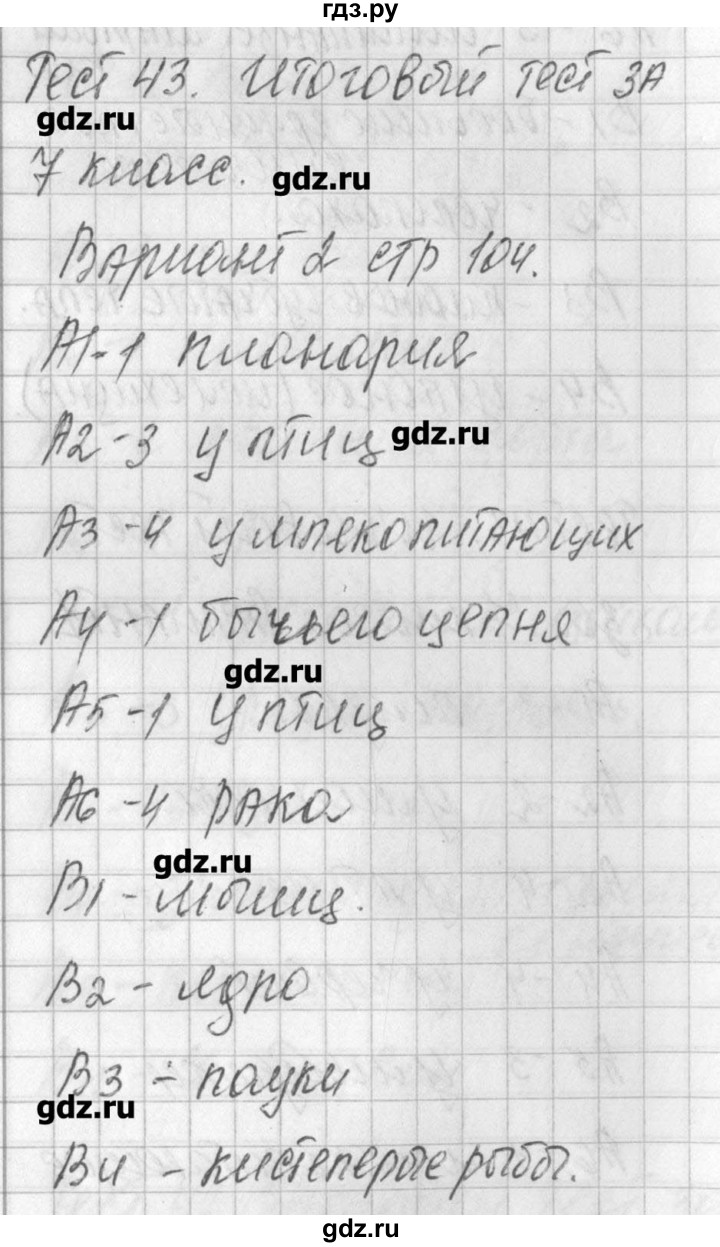 гдз.ру
Тест 43. Итоговый тест за
gdz.ru
7 класс.
gdz.ru
Вариант 2 стр 104.
А1-1 планария
А2-3 у птиц
gdz.ru
А3-4 у млекопитающих
А4-1 бычьего цепня
gdz.ru
А5-1 у птиц
А6-4 рака
gdz.ru
В1-мышц.
В2- ядро
В3 - пауки
gdz.ru
В4 - кистеперые рыбы.
gdz.ru